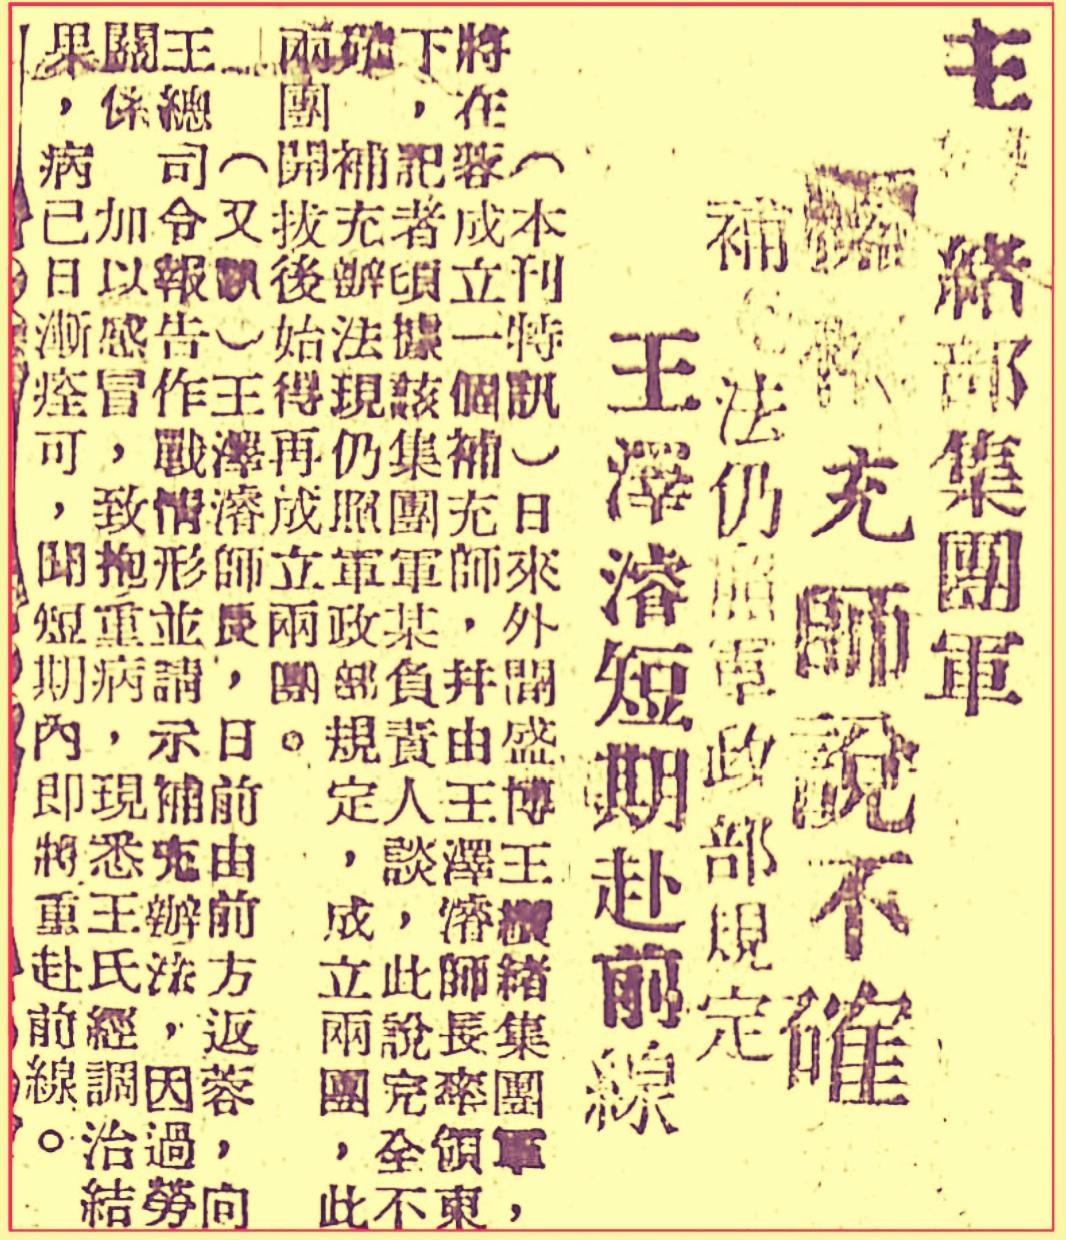 王緒部集團軍
充師說不確
補法仍照軍政部規定
王澤濬短期赴前線
（本刊特訊）日來外間盛博王纘緒集團軍，
將在蓉成立一個補充師，幷由王澤濬師長率領東
下，記者頃據該集團軍某負責人談，此說完全不
確 補充辦法現仍照軍政部規定，成立兩團，此
兩團開拔後始得再成立兩團。
（又訊）王澤濬師長，日前由前方返蓉，向
王總司令報告作戰情形並請示補充辦法，因過勞
關係 加以感冒，致抱重病，現悉王氏經調治結
果，病已日漸痊可，聞短期內即將重赴前線。